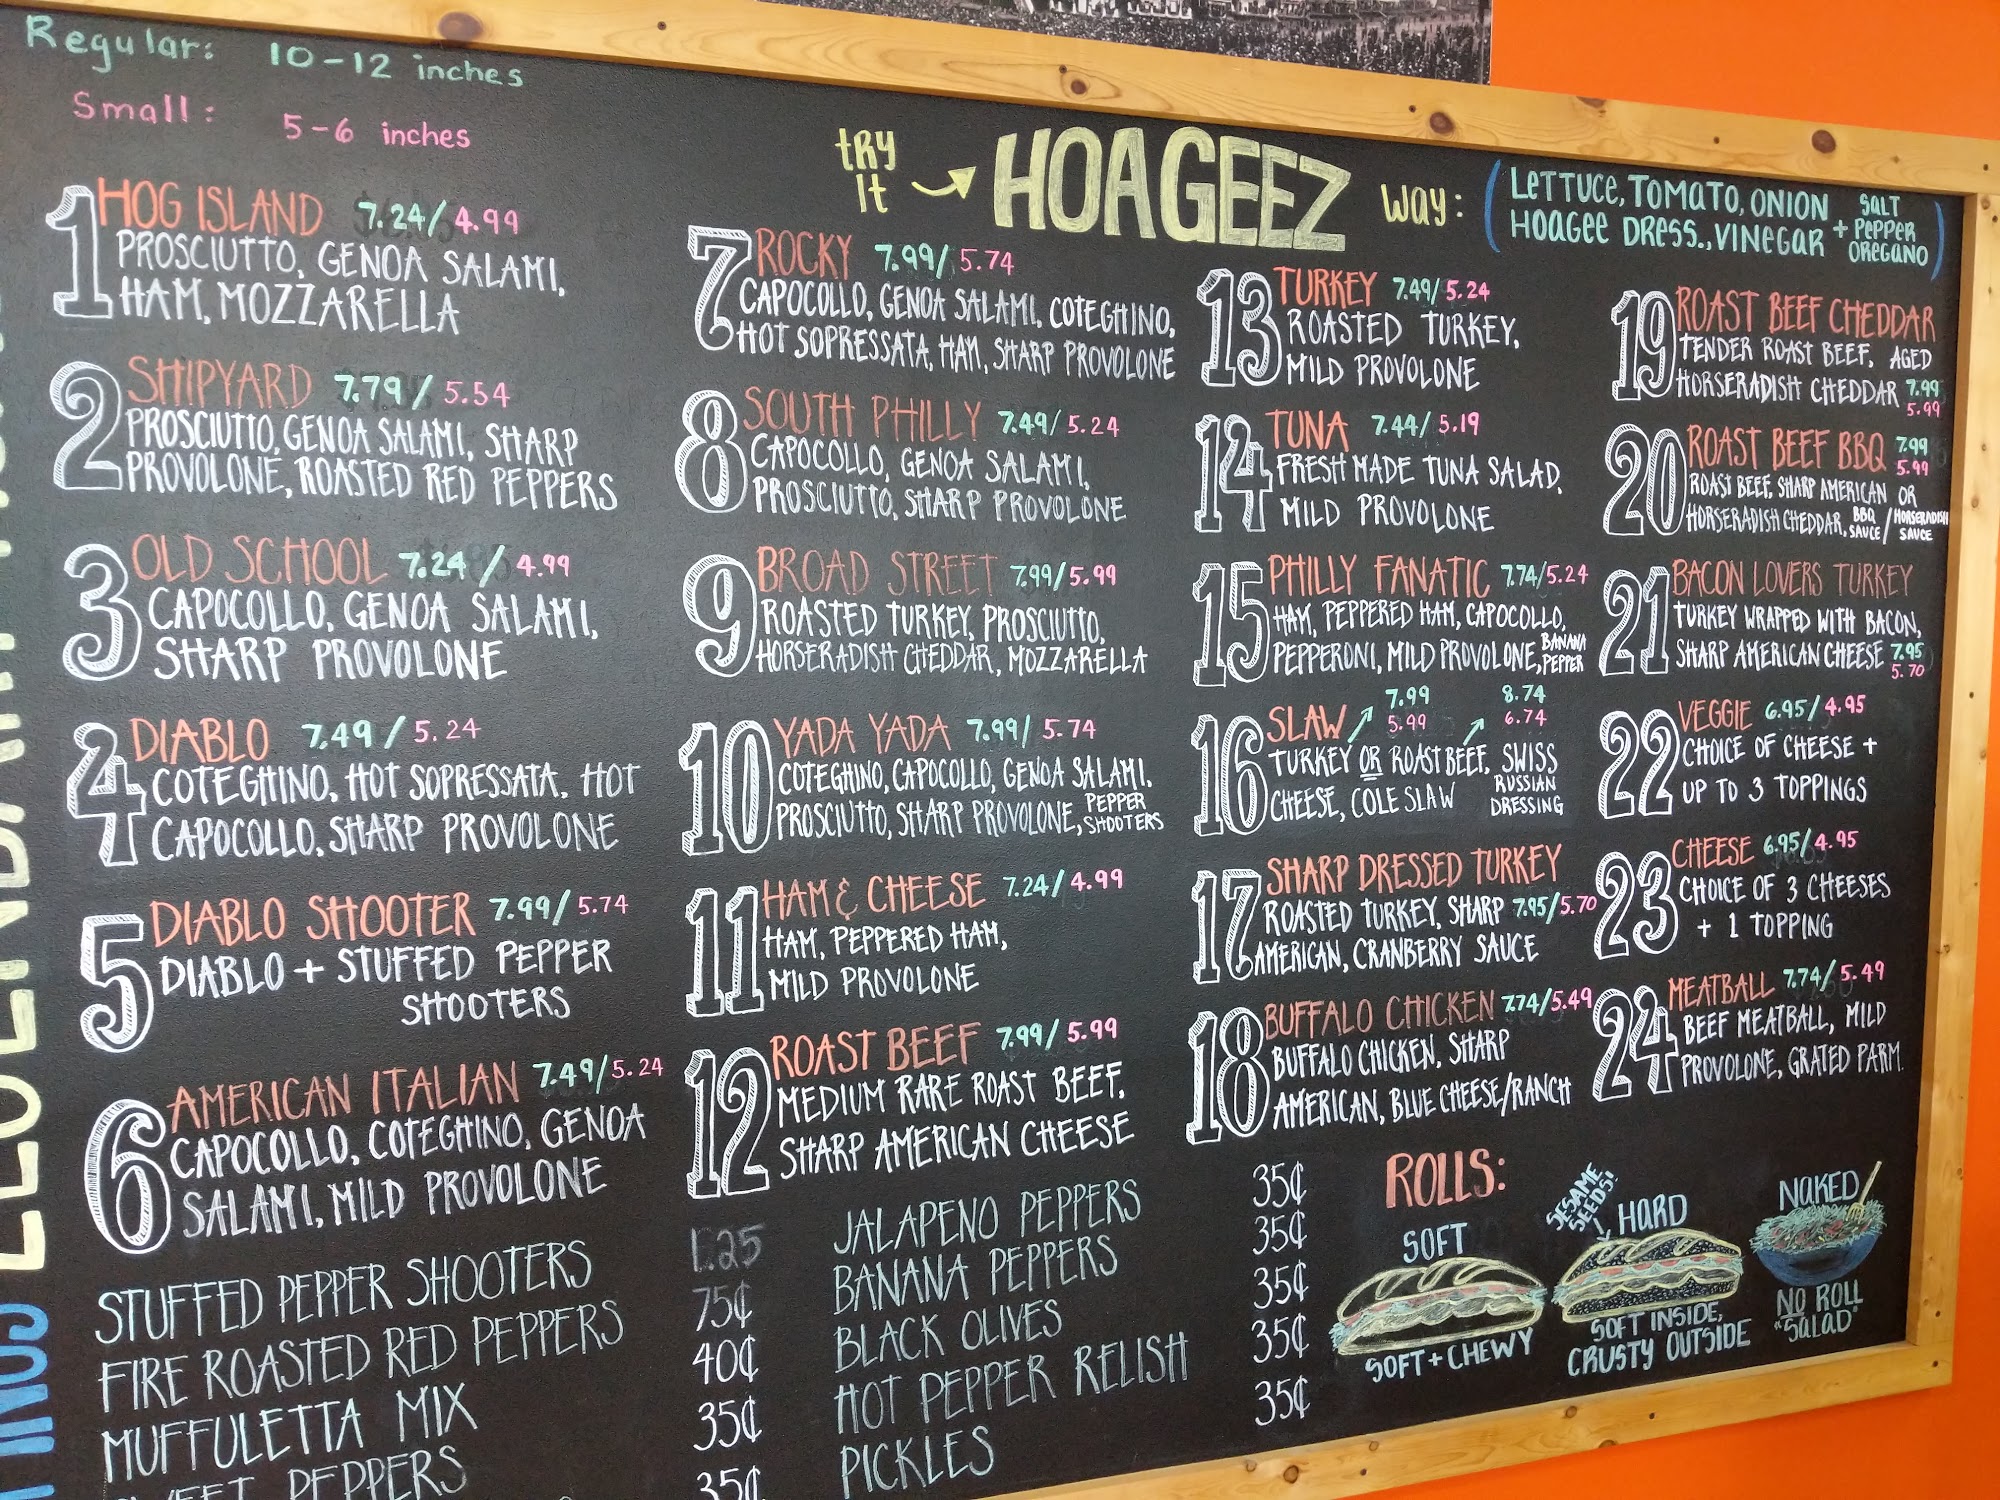 Regular: 10-12 inches
Small: 5-6 inches
try it → HOAGEEZ way:
(LETTUCE, TOMATO, ONION
HOAGEE DRESS., VINEGAR + SALT PEPPER OREGANO)
1 HOG ISLAND 7.24/4.99
PROSCIUTTO, GENOA SALAMI,
HAM, MOZZARELLA
2 SHIPYARD 7.79/5.54
PROSCIUTTO, GENOA SALAMI, SHARP
PROVOLONE, ROASTED RED PEPPERS
3 OLD SCHOOL 7.24/4.99
CAPOCOLLO, GENOA SALAMI,
SHARP PROVOLONE
4 DIABLO 7.49/5.24
COTEGHINO, HOT SOPRESSATA, HOT
CAPOCOLLO, SHARP PROVOLONE
5 DIABLO SHOOTER 7.99/5.74
DIABLO + STUFFED PEPPER
SHOOTERS
6 AMERICAN ITALIAN 7.49/5.24
CAPOCOLLO, COTEGHINO, GENOA
SALAMI, MILD PROVOLONE
7 ROCKY 7.99/5.74
CAPOCOLLO, GENOA SALAMI, COTEGHINO,
HOT SOPRESSATA, HAM, SHARP PROVOLONE
8 SOUTH PHILLY 7.49/5.24
CAPOCOLLO, GENOA SALAMI,
PROSCIUTTO, SHARP PROVOLONE
9 BROAD STREET 7.99/5.99
ROASTED TURKEY, PROSCIUTTO,
HORSERADISH CHEDDAR, MOZZARELLA
10 YADA YADA 7.99/5.74
COTEGHINO, CAPOCOLLO, GENOA SALAMI,
PROSCIUTTO, SHARP PROVOLONE, PEPPER SHOOTERS
11 HAM & CHEESE 7.24/4.99
HAM, PEPPERED HAM,
MILD PROVOLONE
12 ROAST BEEF 7.99/5.99
MEDIUM RARE ROAST BEEF,
SHARP AMERICAN CHEESE
13 TURKEY 7.49/5.24
ROASTED TURKEY,
MILD PROVOLONE
14 TUNA 7.44/5.19
FRESH MADE TUNA SALAD,
MILD PROVOLONE
15 PHILLY FANATIC 7.74/5.24
HAM, PEPPERED HAM, CAPOCOLLO,
PEPPERONI, MILD PROVOLONE, BANANA PEPPER
16 SLAW 7.99 5.99 8.74 6.74
TURKEY OR ROAST BEEF, SWISS
CHEESE, COLE SLAW RUSSIAN DRESSING
17 SHARP DRESSED TURKEY
ROASTED TURKEY, SHARP 7.95/5.70
AMERICAN, CRANBERRY SAUCE
18 BUFFALO CHICKEN 7.74/5.49
BUFFALO CHICKEN, SHARP
AMERICAN, BLUE CHEESE/RANCH
19 ROAST BEEF CHEDDAR
TENDER ROAST BEEF, AGED
HORSERADISH CHEDDAR 7.99
5.99
20 ROAST BEEF BBQ 7.99
5.99
ROAST BEEF, SHARP AMERICAN OR
HORSERADISH CHEDDAR, BBQ SAUCE / HORSERADISH SAUCE
21 BACON LOVERS TURKEY
TURKEY WRAPPED WITH BACON,
SHARP AMERICAN CHEESE 7.95
5.70
22 VEGGIE 6.95/4.95
CHOICE OF CHEESE +
UP TO 3 TOPPINGS
23 CHEESE 6.95/4.95
CHOICE OF 3 CHEESES
+ 1 TOPPING
24 MEATBALL 7.74/5.49
BEEF MEATBALL, MILD
PROVOLONE, GRATED PARM.
STUFFED PEPPER SHOOTERS 1.25
FIRE ROASTED RED PEPPERS 75¢
MUFFULETTA MIX 40¢
PEPPERS 35¢
35¢
JALAPENO PEPPERS 35¢
BANANA PEPPERS 35¢
BLACK OLIVES 35¢
HOT PEPPER RELISH 35¢
PICKLES 35¢
ROLLS:
SOFT
SOFT + CHEWY
SESAME SEEDS!
HARD
SOFT INSIDE,
CRUSTY OUTSIDE
NAKED
NO ROLL
"SALAD"